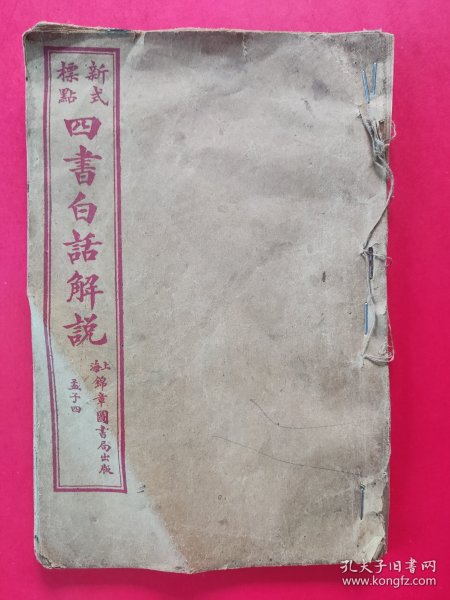 新式
標點
四書白話解説
上海
錦章圖書局出版
孟子四
孔夫子旧书网
www.kongfz.com